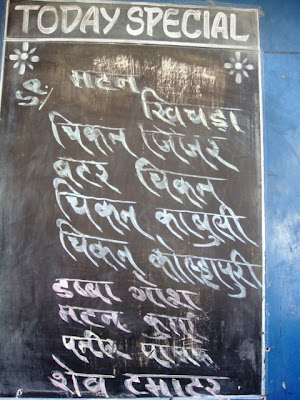 TODAY SPECIAL
मटन
खिचड़ा
चिकन जिंजर
बटर चिकन
चिकन काबुली
चिकन कोल्हापुरी
डब्बा गोश
मटन कुर्मा
पनीर पालक
शेव टमाटर